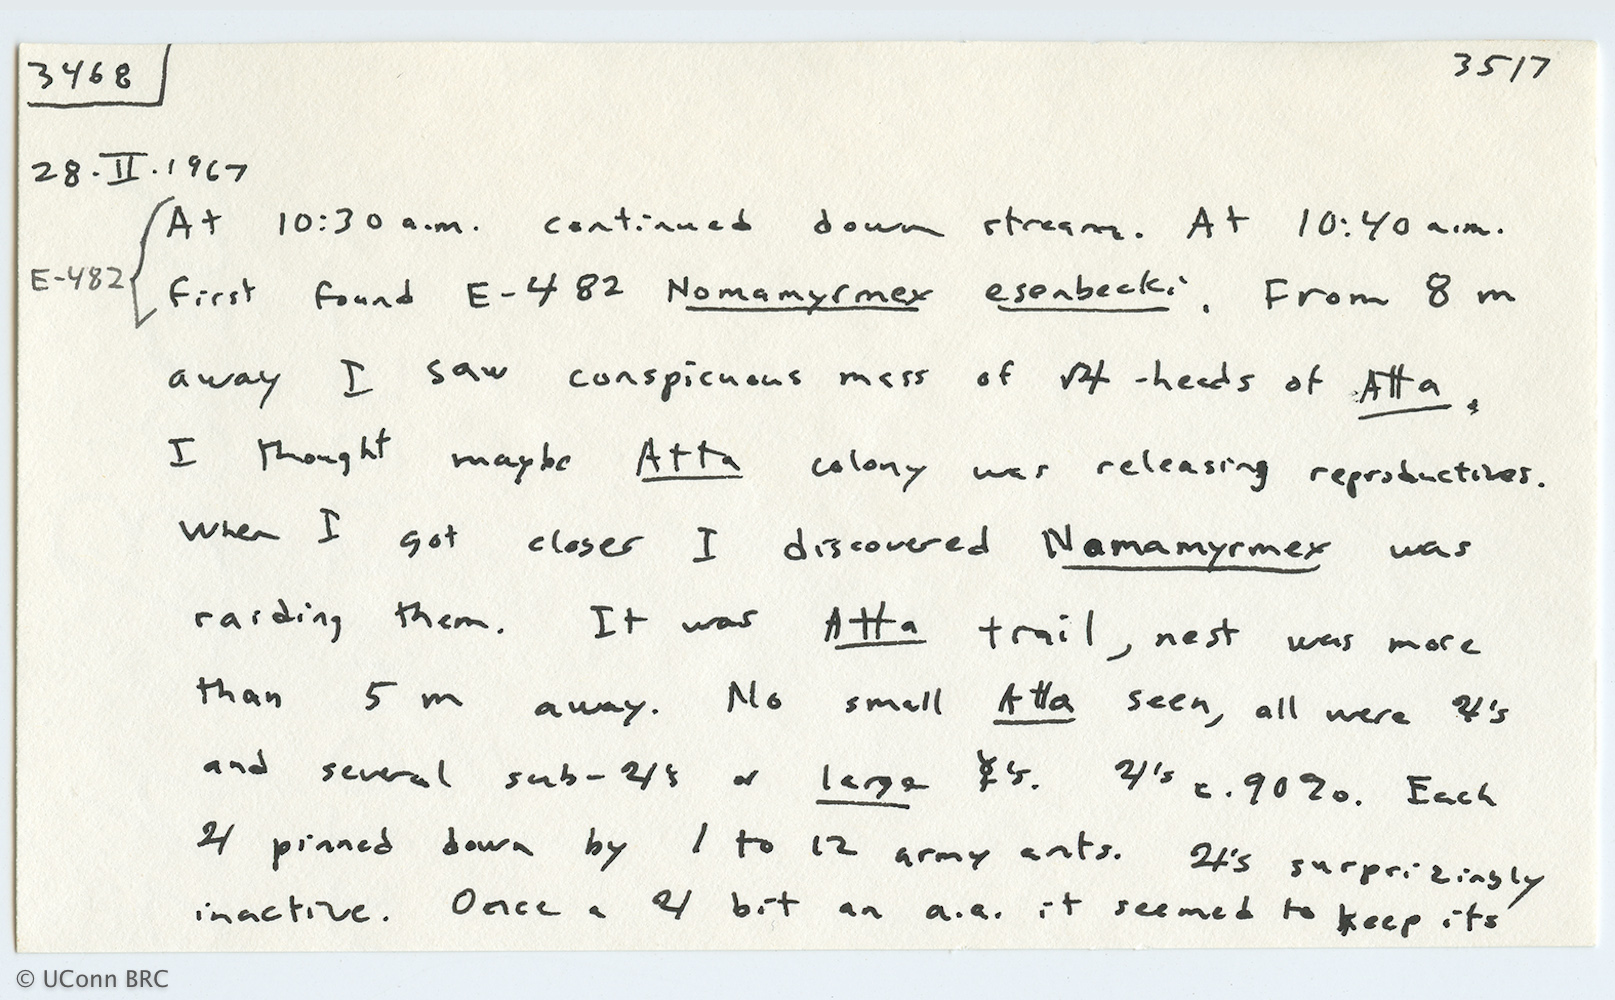 3468
3517
28.II.1967
At 10:30 a.m. continued down stream. At 10:40 a.m.
E-482
first found E-482 Nomamyrmex esenbecki. From 8 m
away I saw conspicuous mass of ♃-heads of Atta.
I thought maybe Atta colony was releasing reproductives.
When I got closer I discovered Nomamyrmex was
raiding them. It was Atta trail, nest was more
than 5 m away. No small Atta seen, all were ♃'s
and several sub-♃'s or large ☿'s. ♃'s c. 90%. Each
♃ pinned down by 1 to 12 army ants. ♃'s surprizingly
inactive. Once a ♃ bit an a.a. it seemed to keep its
© UConn BRC